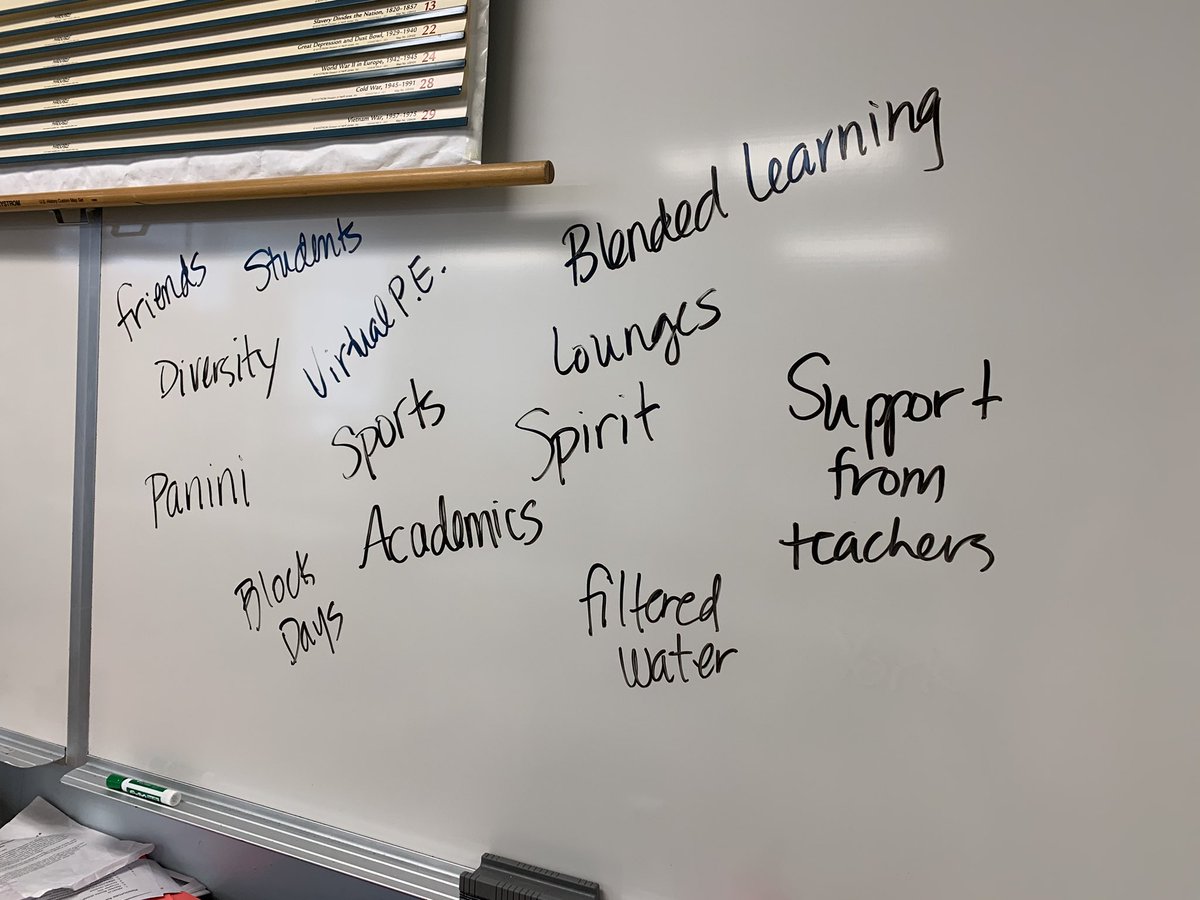 Slavery Divides the Nation, 1820–1857 13
Great Depression and Dust Bowl, 1929–1940 22
World War II in Europe, 1942–1945 24
Cold War, 1945–1991 28
Vietnam War, 1957–1975 29
NYSTROM U.S. History Custom Map Set
Blended Learning
friends Students
Virtual P.E.
Diversity
Lounges
Sports
Spirit
Support
from
teachers
Panini
Academics
Block
Days
filtered
water